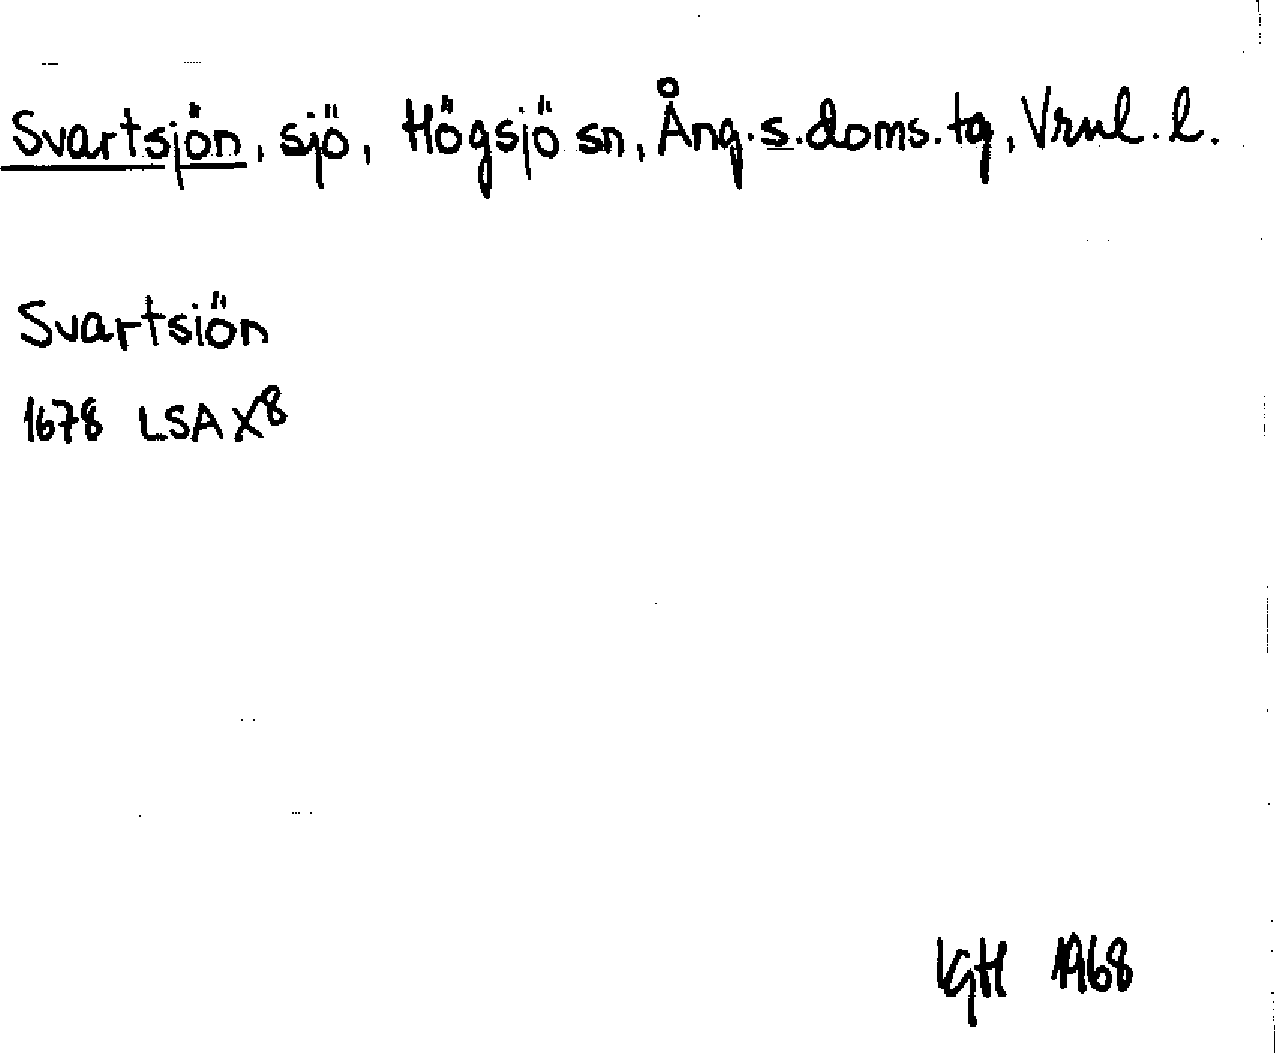 Svartsjön, sjö, Högsjö sn, Ång.s.doms.tg, Vrnl.l.
Svartsiön
1678 LSA X8
LGH 1968